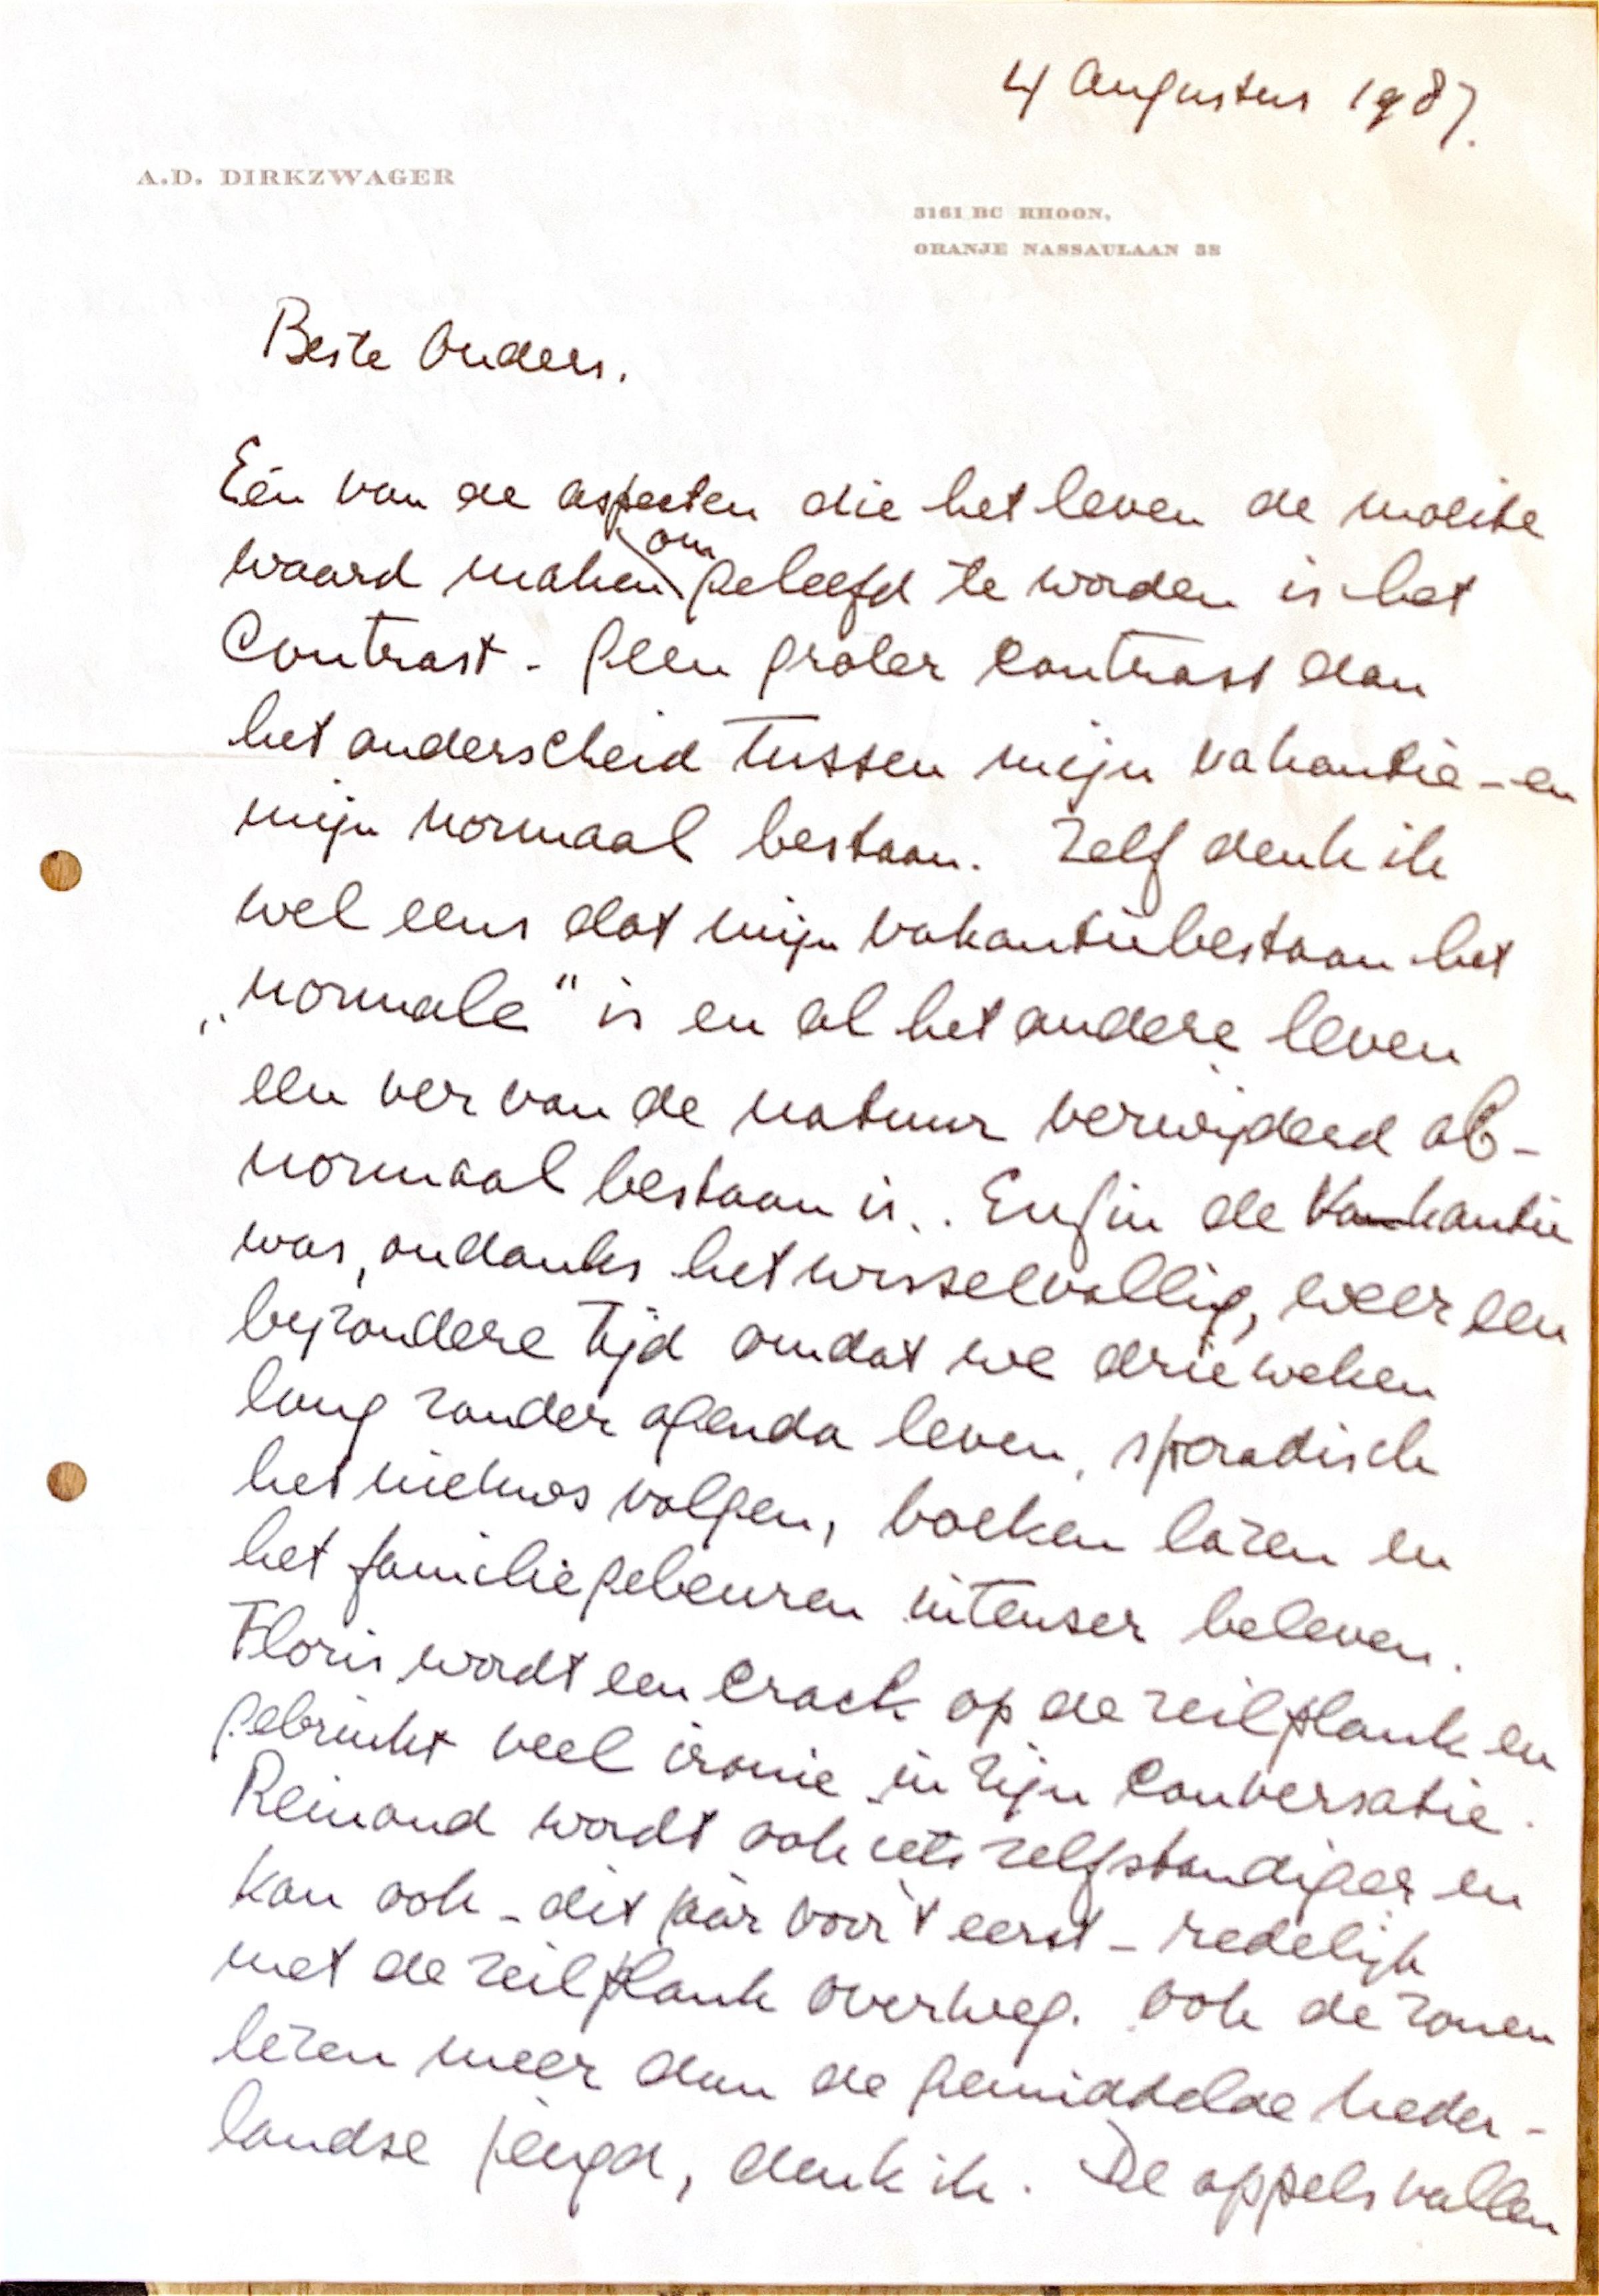 4 Augustus 1987.
A.D. DIRKZWAGER
3161 BC RHOON,
ORANJE NASSAULAAN 38
Beste Ouders.
Eén van de aspecten die het leven de moeite
waard maken om geleefd te worden is het
Contrast - geen groter contrast dan
het onderscheid tussen mijn vakantie- en
mijn normaal bestaan. Zelf denk ik
wel eens dat mijn vakantiebestaan het
„normale" is en al het andere leven
een ver van de natuur verwijderd ab-
normaal bestaan is.. Enfin de Vakantie
was, ondanks het wisselvallig, weer een
bijzondere tijd omdat we drie weken
lang zonder agenda leven, sporadisch
het nieuws volgen, boeken lazen en
het familiegebeuren intenser beleven.
Floris wordt een crack op de zeilplank en
gebruikt veel ironie in zijn conversatie.
Reinoud wordt ook iets zelfstandiger en
kan ook - dit jaar voor 't eerst - redelijk
met de zeilplank overweg. Ook de zonen
lezen meer dan de gemiddelde neder-
landse jeugd, denk ik. De appels vallen